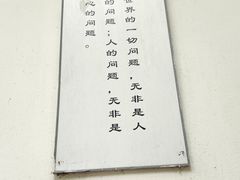 世界的一切问题，无非是人
的问题；人的问题，无非是
心的问题。